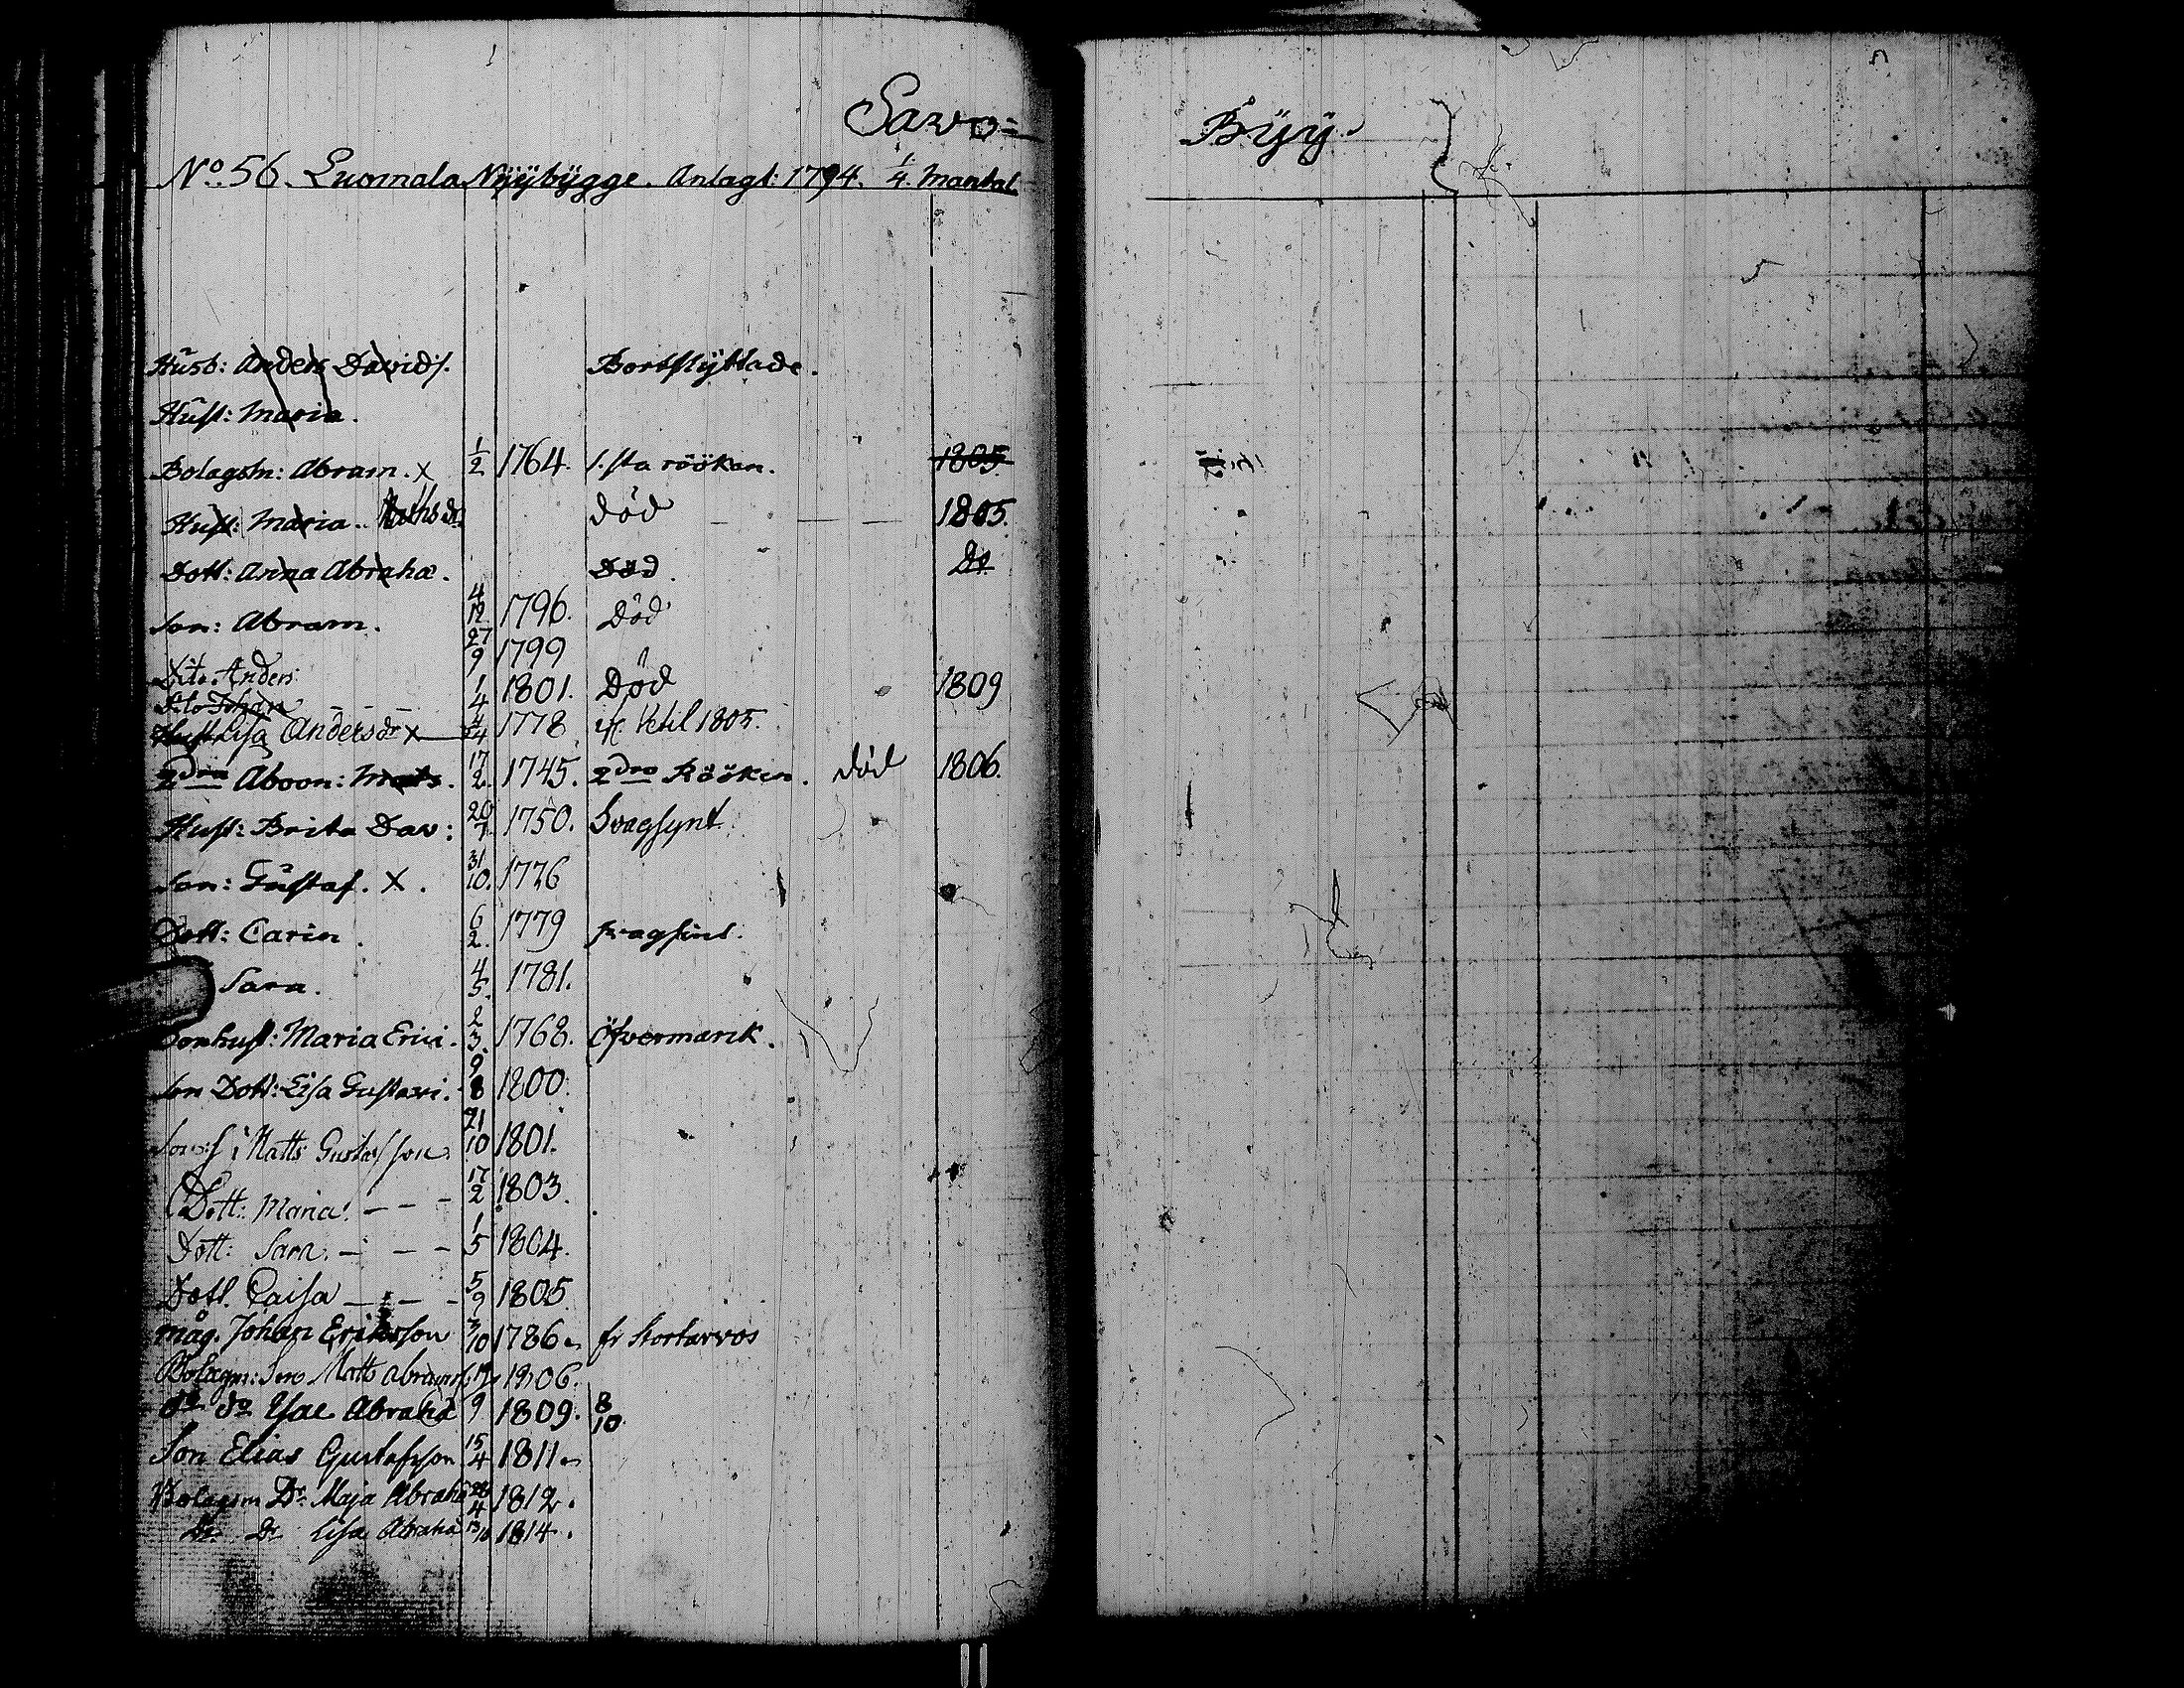 Savo= Byy.
No. 56. Luomala Nyybygge. Anlagt: 1794. 1/4. Mantal
Husb: Anders Davids. Bortflyttade.
Hust: Maria.
Bolagsm: Abram. x 1/2 1764. 1.sta röökan. 1805
Hust: Maria. död 1805.
Dott: Anna Abrahæ. Död. Do
Son: Abram. 4/12 1796. Död
Dito Anders 27/9 1799
Dito Johan 1/4 1801. Död 1809
Hust Lisa Andersdr x 1778 1805.
2dra Aboon: Mats. 17/2. 1745. 2dra Rööken. död 1806.
Hust: Brita Dav: 20/7. 1750. Svagsynt.
Son: Gustaf. X. 31/10. 1776
Dott: Carin. 6/2. 1779 svagsint.
Sara. 4/5. 1781.
Sonhust: Maria Erici. 2/3. 1768. Öfvermarck.
Son Dott: Lisa Gustavi. 9/8 1800.
Matts Gustafsson 21/10 1801.
Dott: Maria. - - - 17/2 1803.
Dott: Sara. - - - 1/5 1804.
Dott. Caisa - - - 5/9 1805
måg. Johan Eriksson 1786.
Bolagm: Son Matts Abrams 1806.
do do Isac Abrahæ 9 1809. 8/10
Son Elias Gustafsson 15/4 1811.
Bolagsm Dr Maja Abrahæ 28/4 1812.
Dr Lisa Abrahæ 1814.